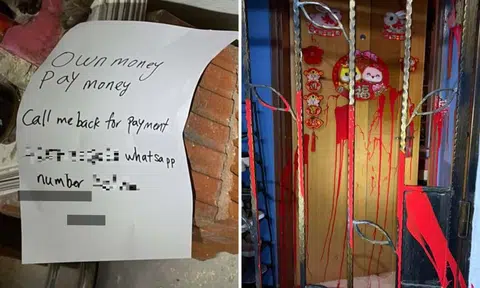 Own money
Pay money
Call me back for payment
whatsapp
number
福